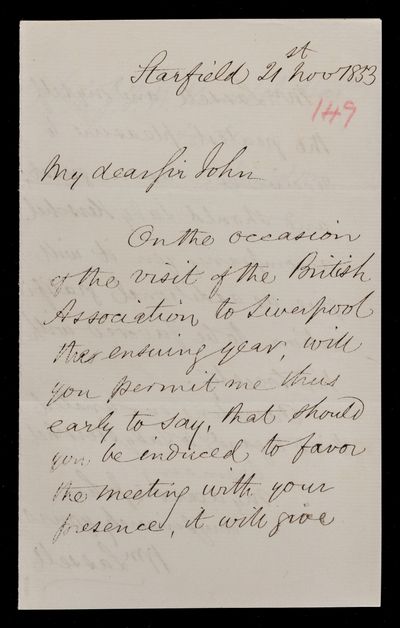 Starfield 21st Nov 1853
149
My dear Sir John
On the occasion
of the visit of the British
Association to Liverpool
the ensuing year, will
you permit me thus
early to say, that should
you be induced to favor
the meeting with your
presence, it will give